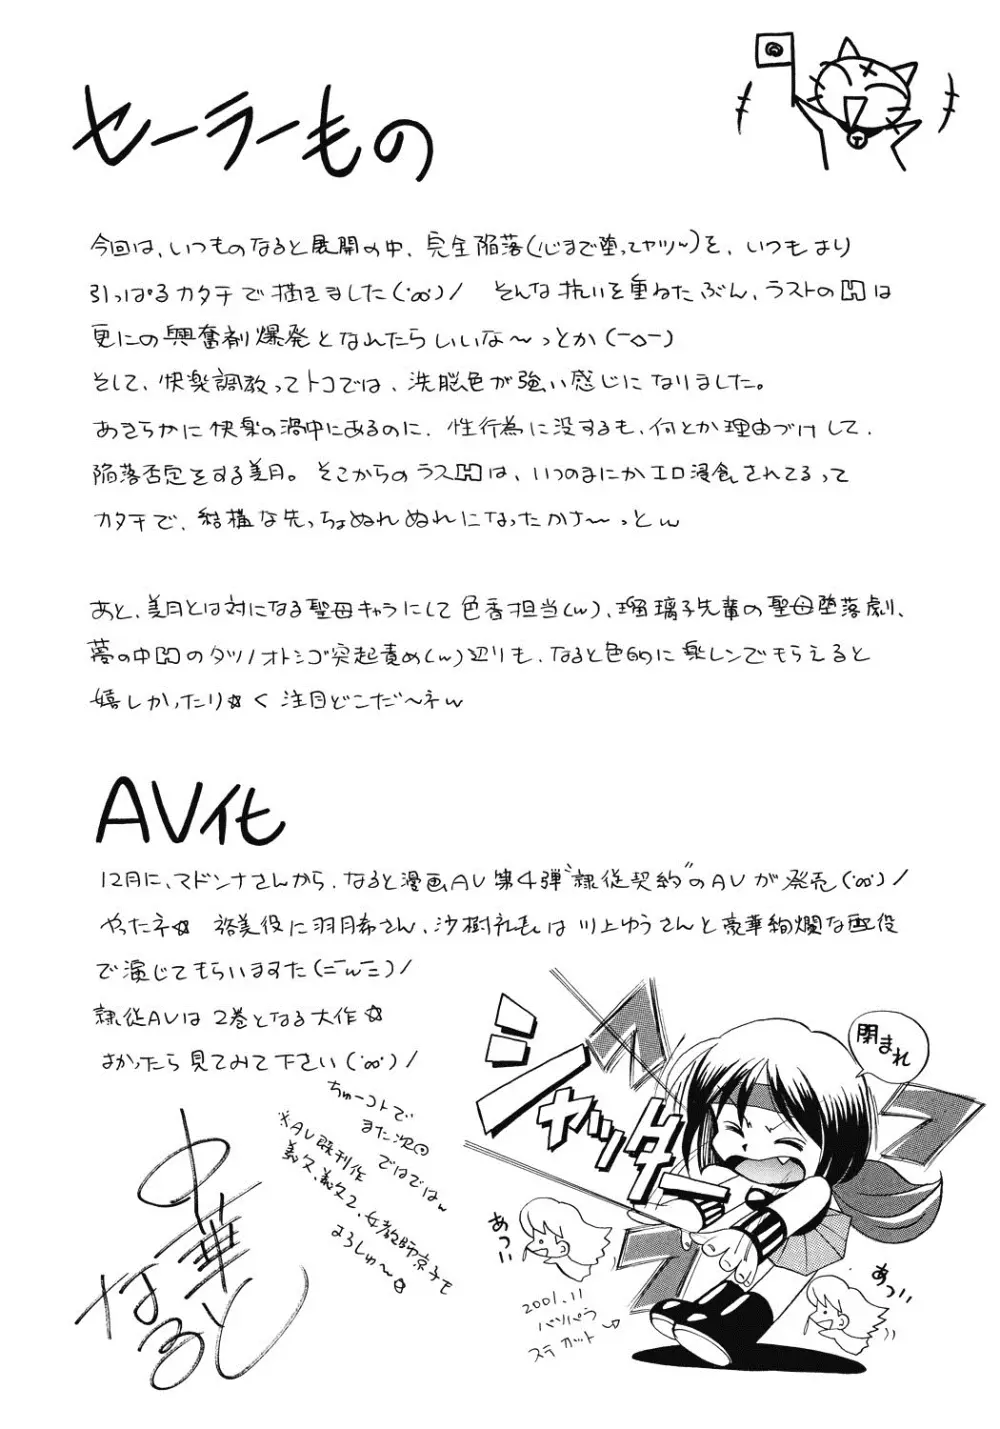 セーラーもの
今回は、いつものなると展開の中、完全陥落(心まで堕ってヤツ〜)を、いつもより
引っぱるカタチで描きました(·ထ·)/ そんな抗いを重ねたぶん、ラストのHは
更にの興奮剤爆発となれたらいいな〜っとか(ー◇ー)
そして、快楽調教ってトコでは、洗脳色が強い感じになりました。
あきらかに快楽の渦中にあるのに、性行為に没するも、何とか理由づけして、
陥落否定をする美月。そこからのラスHは、いつのまにかエロ浸食されてるって
カタチで、結構な先っちょぬれぬれになったかな〜っとw
あと、美月とは対になる聖母キャラにして色香担当(w)、瑠璃子先輩の聖母堕落劇、
夢の中Hのタツノオトシゴ突起責め(w)辺りも、なると色的に楽しんでもらえると
嬉しかったり☆く 注目どこだ〜ネw
AV化
12月に、マドンナさんから、なると漫画AV第4弾"隷従契約"のAVが発売(·ထ·)/
やったネ☆ 裕美役に羽月希さん、沙樹
は川上ゆうさんと豪華絢爛な配役
で演じてもらいますた(=ˉwˉ=)/
隷従AVは2巻となる大作☆
よかったら見てみて下さい(·ထ·)/
ちゅーコトで
また次回
ではではw
※AV既刊作
義父、義父2、女教師京子も
よろしゅ〜☆
中華
なると
シャッッター
閉まれ
あつい
あつい
2001.11
パソパラ
ステカット→